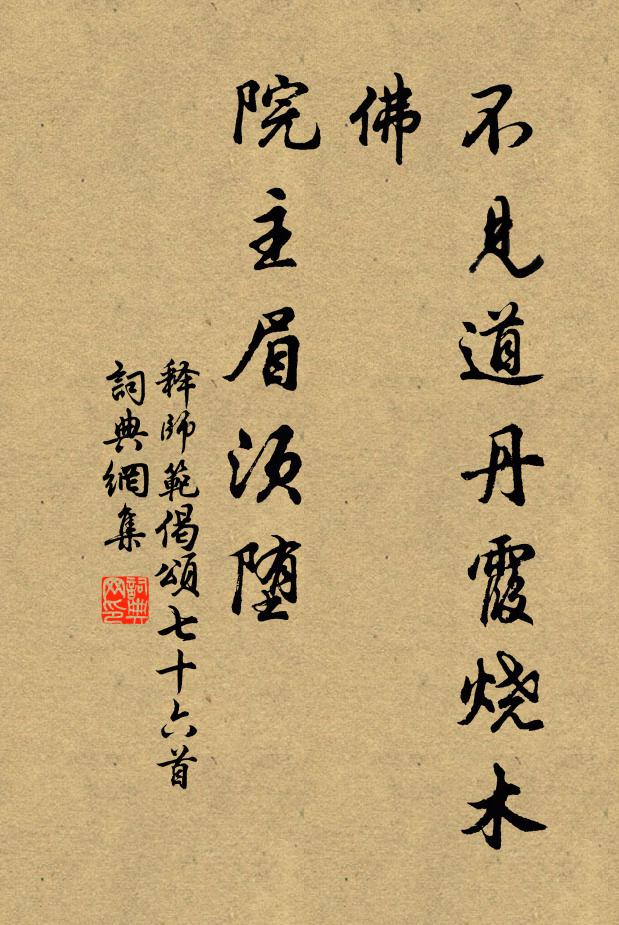 不見道丹霞烧木
佛
院主眉须堕
释師範偈頌七十六首
詞典網集
詞典网印